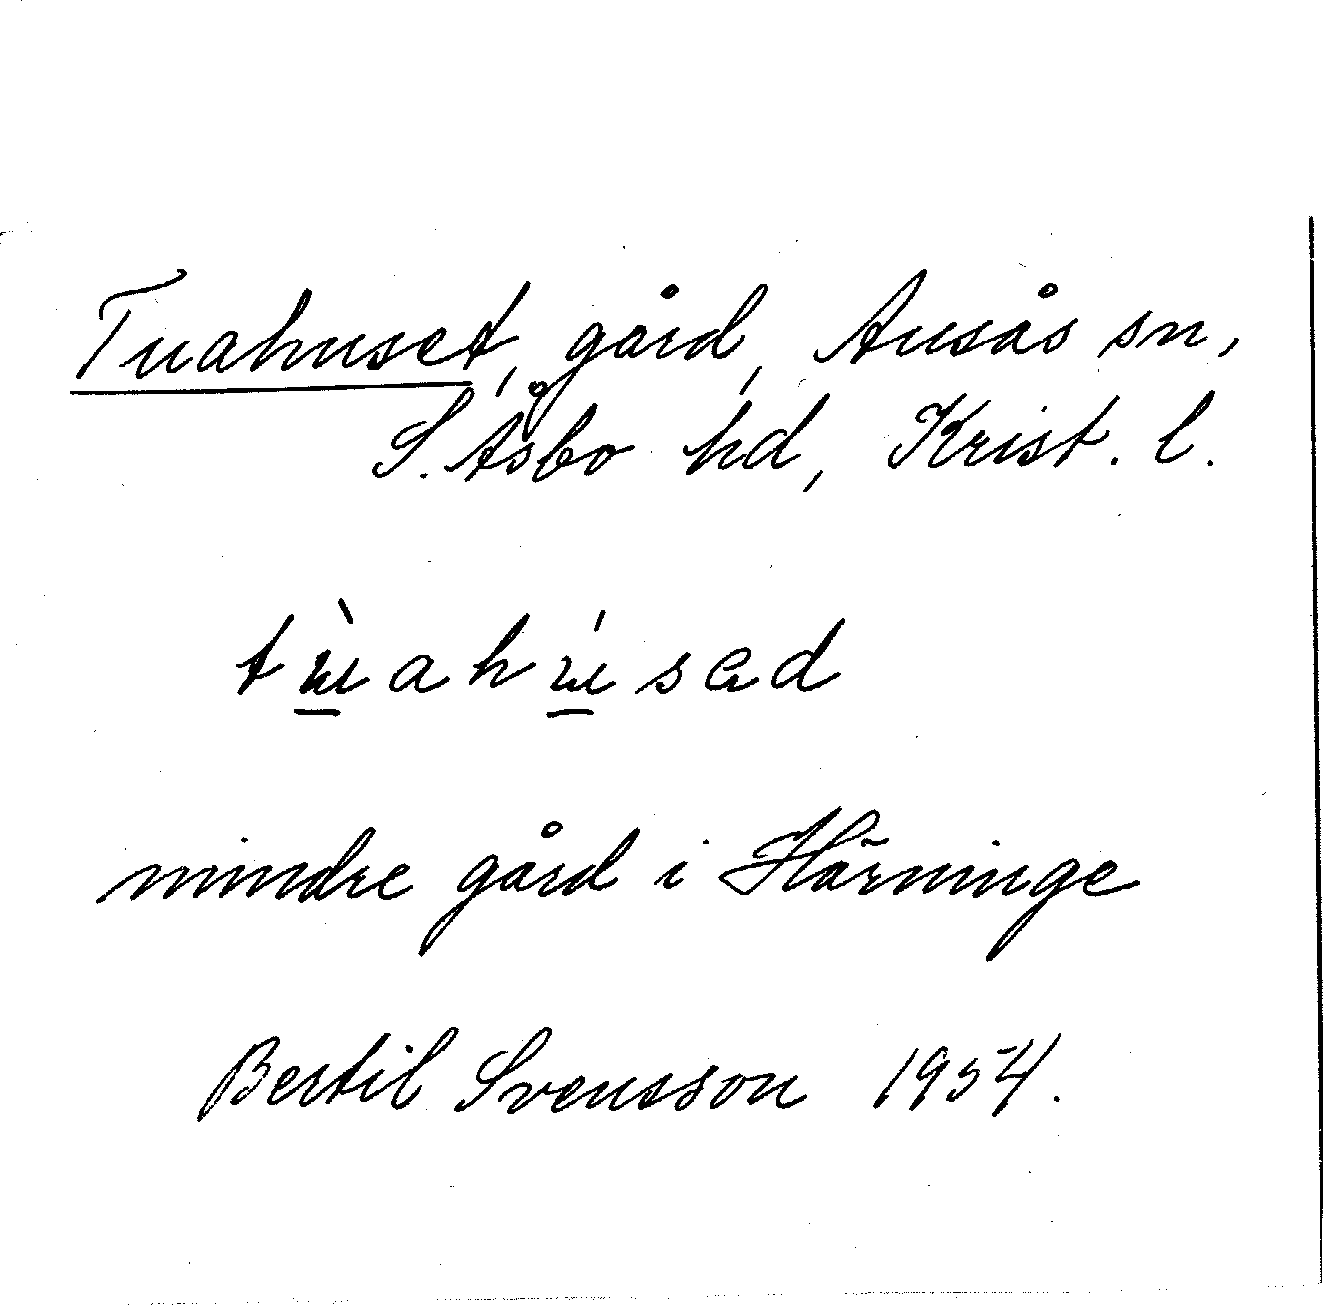 Tuahuset, gård, Ausås sn,
S. Åsbo hd, Krist. l.
tùahúsad
mindre gård i Härninge
Bertil Svensson 1954.